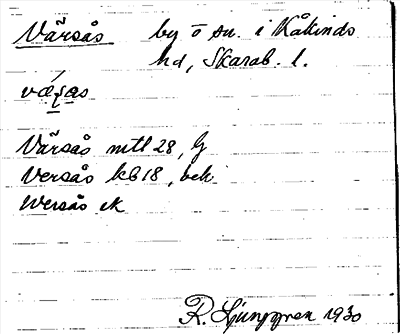 Vårsås by o sn. i Kåkinds
hd, Skarab. l.
Vårsås mtl 28, G
Versås kb 18, bek
Wersås ek
R. Ljunggren 1930